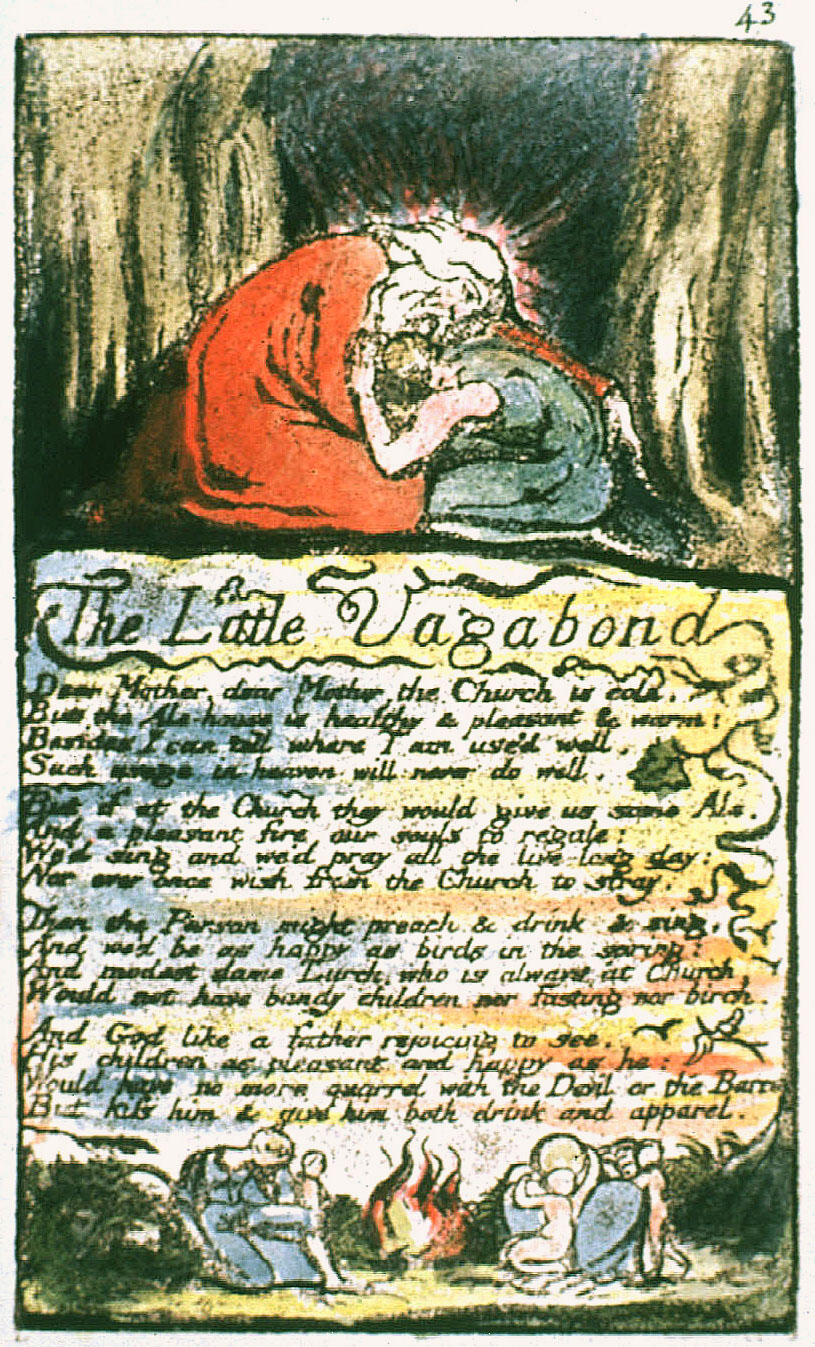 43
The Little Vagabond
Dear Mother, dear Mother, the Church is cold.
But the Ale-house is healthy & pleasant & warm:
Besides I can tell where I am use'd well.
Such usage in heaven will never do well.
But if at the Church they would give us some Ale.
And a pleasant fire our souls to regale:
We'd sing and we'd pray all the live-long day:
Nor ever once wish from the Church to stray.
Then the Parson might preach & drink & sing.
And we'd be as happy as birds in the spring:
And modest dame Lurch, who is always at Church
Would not have bandy children nor fasting nor birch.
And God like a father rejoicing to see.
His children as pleasant and happy as he:
Would have no more quarrel with the Devil or the Barrel
But kiss him & give him both drink and apparel.